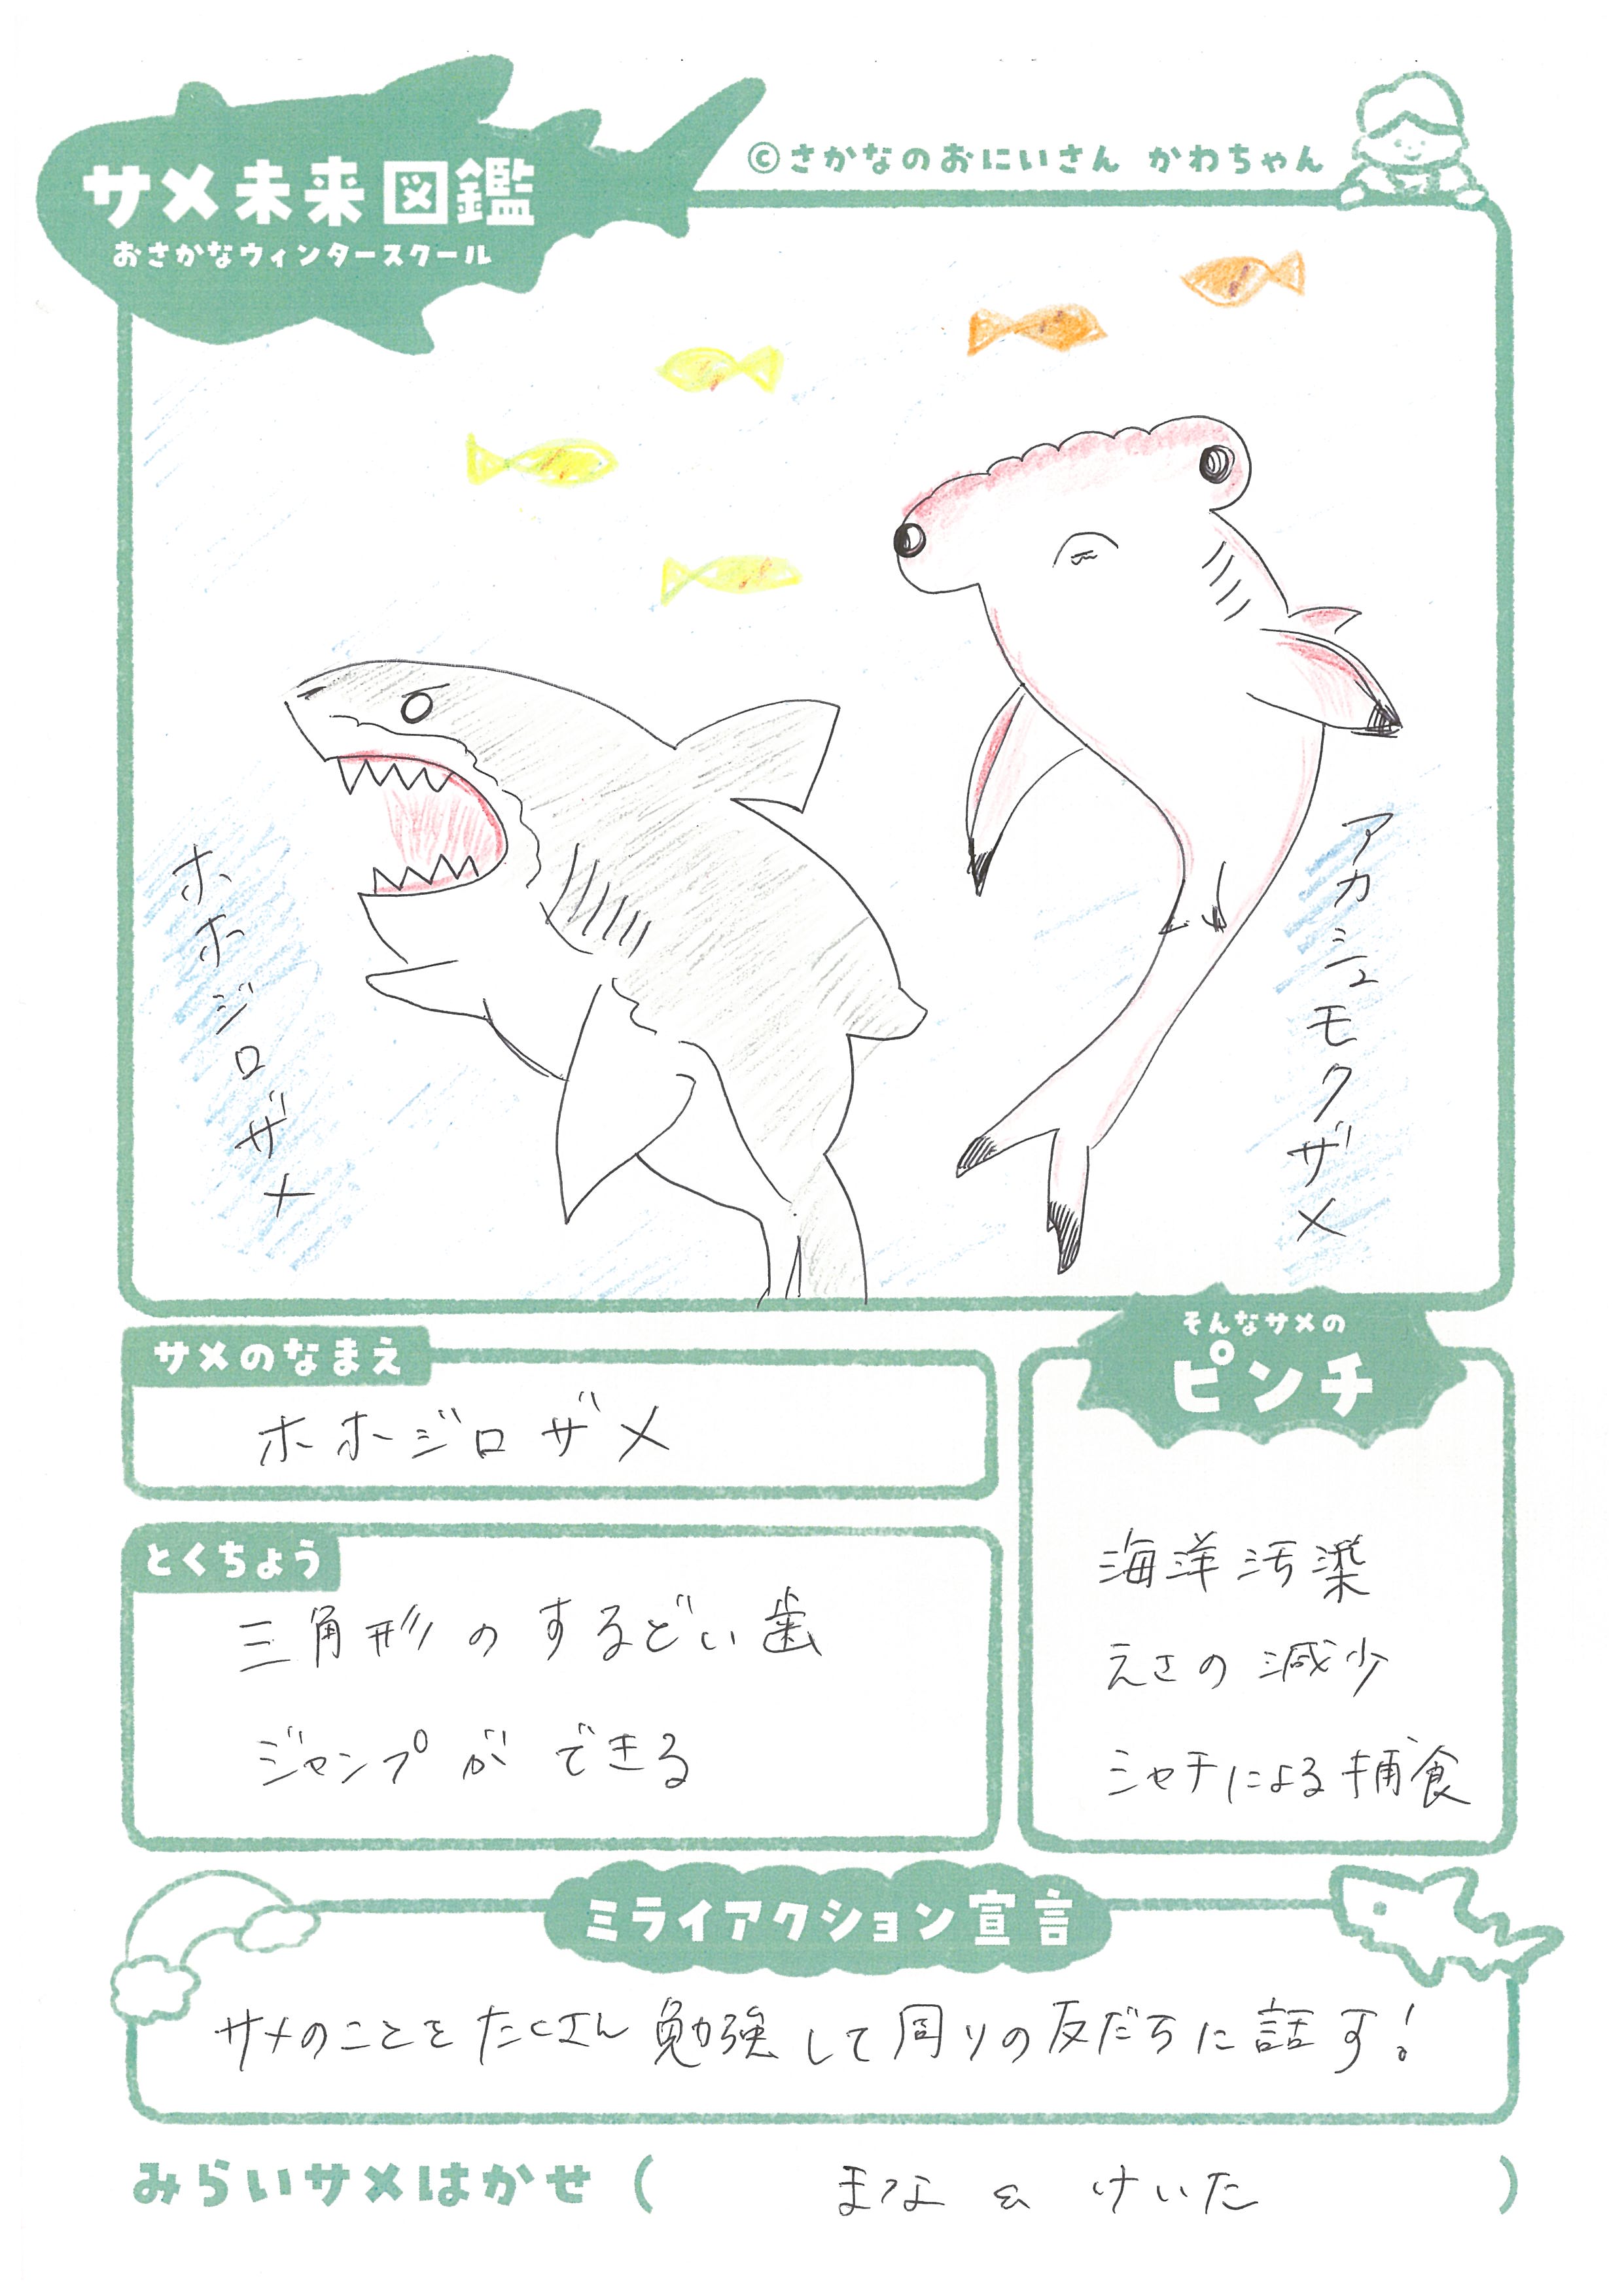 サメ未来図鑑
おさかなウィンタースクール
©さかなのおにいさん かわちゃん
ホホジロザメ
アカシュモクザメ
サメのなまえ
ホホジロザメ
とくちょう
三角形のするどい歯
ジャンプができる
そんなサメの
ピンチ
海洋汚染
えさの減少
シャチによる捕食
ミライアクション宣言
サメのことをたくさん勉強して周りの友だちに話す!
みらいサメはかせ( まな & けいた )